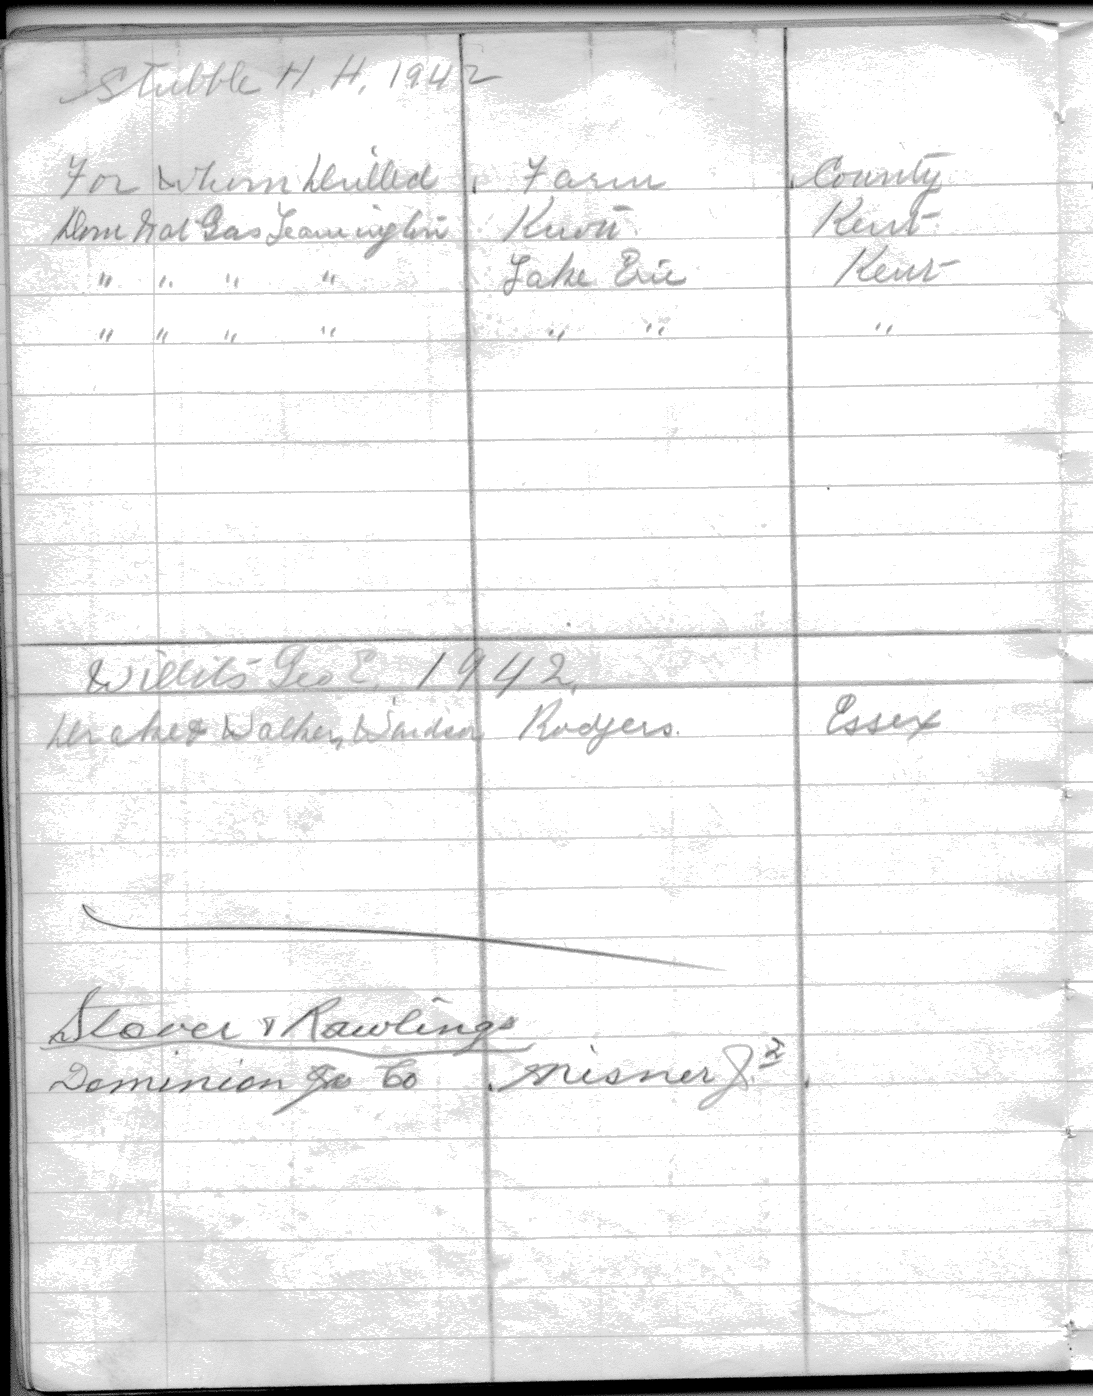 Stubble H. H. 1942
For Whom Drilled Farm County
Dom Nat Gas Leamington Knott Kent
" " " " Lake Erie Kent
" " " " " " "
Willits Geo E. 1942.
Drake & Walker, Windsor Rodgers. Essex
Slover & Rawlings
Dominion Gas Co Misner J. 2